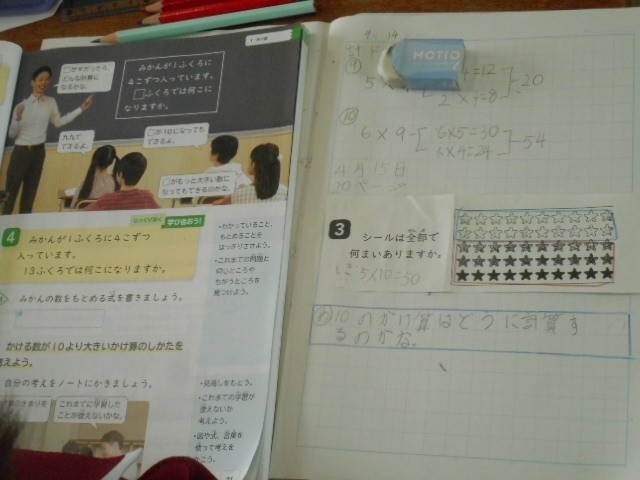 □がそだったら、
どんな計算に
なるかな。
みかんが1ふくろに
4こずつ入っています。
□ふくろでは何こに
なりますか。
九九で
できるよ。
□が10になっても
できるよ。
□がもっと大きい数に
なってもできるのかな。
学び合おう!
4
みかんが1ふくろに4こずつ
入っています。
13ふくろでは何こになりますか。
みかんの数をもとめる式を書きましょう。
かける数が10より大きいかけ算のしかたを
考えよう。
自分の考えをノートにかきましょう。
これまでに学習した
ことが使えないかな。
・わかっていること、
もとめることを
はっきりさせよう。
・これまでの問題と
同じところや
ちがうところを
見つけよう。
・見通しをもとう。
・これまでの学習が
使えないか
考えよう。
・図や式、言葉を
使って考えを
かこう。
MOTIO
=12
2×4=8
20
⑩
6×9
6×5=30
6×4=24
54
4月15日
20ページ
3
シールは全部で
何まいありますか。
5×10=50
10のかけ算はどうに計算す
るのかな。